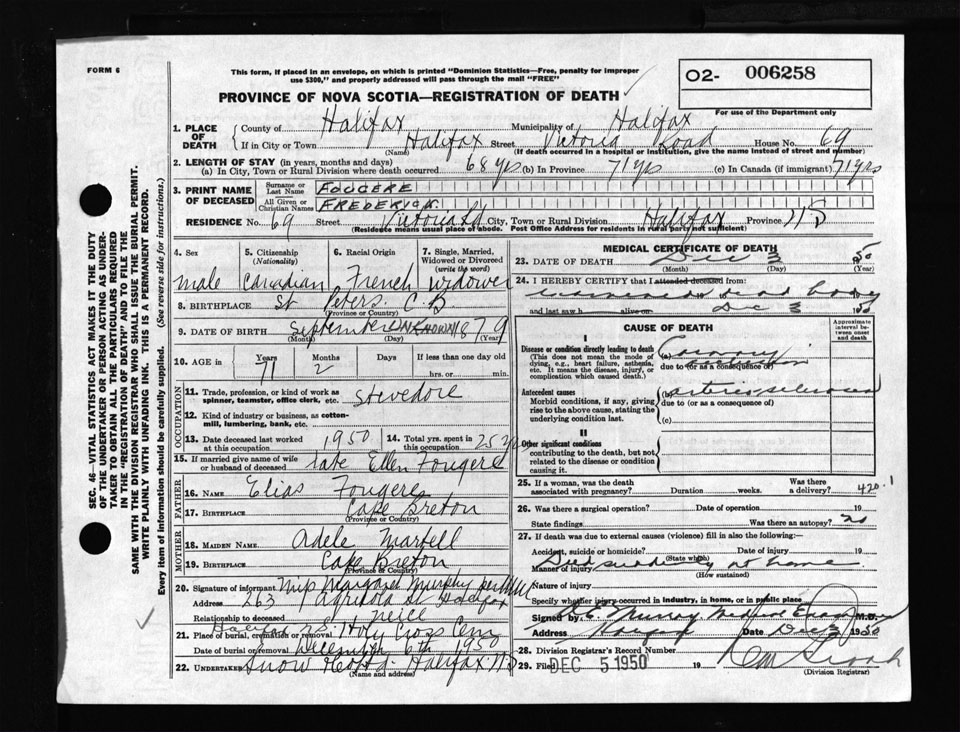 FORM 6
This form, if placed in an envelope, on which is printed "Dominion Statistics—Free, penalty for improper
use $300," and properly addressed will pass through the mail "FREE"
O2- 006258
For use of the Department only
PROVINCE OF NOVA SCOTIA—REGISTRATION OF DEATH
1. PLACE OF DEATH
County of Halifax Municipality of Halifax
If in City or Town Halifax Street Victoria Road House No. 69
(Name) (If death occurred in a hospital or institution, give the name instead of street and number)
2. LENGTH OF STAY (in years, months and days)
(a) In City, Town or Rural Division where death occurred 68 yrs (b) In Province 71 yrs (c) In Canada (if immigrant) 71 yrs
3. PRINT NAME OF DECEASED
Surname or Last Name FOUGERE
All Given or Christian Names FREDERICK
RESIDENCE No. 69 Street Victoria Rd City, Town or Rural Division Halifax Province NS
(Residence means usual place of abode. Post Office Address for residents in rural parts not sufficient)
4. Sex
male
5. Citizenship
(Nationality)
Canadian
6. Racial Origin
French
7. Single, Married,
Widowed or Divorced
(write the word)
Widower
8. BIRTHPLACE St Peters C.B
(Province or Country)
9. DATE OF BIRTH September UNKNOWN 1879
(Month) (Day)
10. AGE in
Years Months Days If less than one day old
71 2 hrs. or min.
OCCUPATION
11. Trade, profession, or kind of work as
spinner, teamster, office clerk, etc. Stevedore
12. Kind of industry or business, as cotton-
mill, lumbering, bank, etc.
13. Date deceased last worked
at this occupation 1950
14. Total yrs. spent in
this occupation 25 yrs
15. If married give name of wife
or husband of deceased late Ellen Fougere
FATHER
16. NAME Elias Fougere
17. BIRTHPLACE Cape Breton
(Province or Country)
MOTHER
18. MAIDEN NAME Adele Martell
19. BIRTHPLACE Cape Breton
(Province or Country)
20. Signature of informant Margaret Murphy per
Address 263 Agricola St Halifax
Neice
21. Place of burial, cremation or removal Halifax NS Holy Cross Cem
Date of burial or removal December 6th 1950
22. UNDERTAKER Snow Halifax NS
(Name and address)
MEDICAL CERTIFICATE OF DEATH
23. DATE OF DEATH Dec 3 50
(Month) (Day) (Year)
24. I HEREBY CERTIFY that I attended deceased from:
examined dead body
and last saw h alive on Dec 3 50
CAUSE OF DEATH
Approximate interval between onset and death
I
Disease or condition directly leading to death
(This does not mean the mode of
dying, e.g., heart failure, asthenia,
etc. It means the disease, injury, or
complication which caused death.)
(a) Coronary
due to (or as a consequence of)
Antecedent causes
Morbid conditions, if any, giving
rise to the above cause, stating the
underlying condition last.
(b) arteriosclerosis
due to (or as a consequence of)
(c)
II
Other significant conditions
contributing to the death, but not
related to the disease or condition
causing it.
25. If a woman, was the death
associated with pregnancy? Duration weeks. Was there
a delivery? 420.1
26. Was there a surgical operation? Date of operation 19
State findings Was there an autopsy? no
27. If death was due to external causes (violence) fill in also the following:
Accident, suicide or homicide? Date of injury 19
(State which)
Manner of injury Died suddenly at home
(How sustained)
Nature of injury
Specify whether injury occurred in industry, in home, or in public place
Signed by Murray Medical Examiner M.D.
Address Date Dec 3 1950
28. Division Registrar's Record Number
29. Filed DEC 5 1950 19
(Division Registrar)
SEC. 46—VITAL STATISTICS ACT MAKES IT THE DUTY
OF THE UNDERTAKER OR PERSON ACTING AS UNDER-
TAKER TO OBTAIN ALL THE PARTICULARS REQUIRED
IN THE "REGISTRATION OF DEATH" AND TO FILE THE
SAME WITH THE DIVISION REGISTRAR WHO SHALL ISSUE THE BURIAL PERMIT.
WRITE PLAINLY WITH UNFADING INK. THIS IS A PERMANENT RECORD.
Every item of information should be carefully supplied. (See reverse side for instructions.)